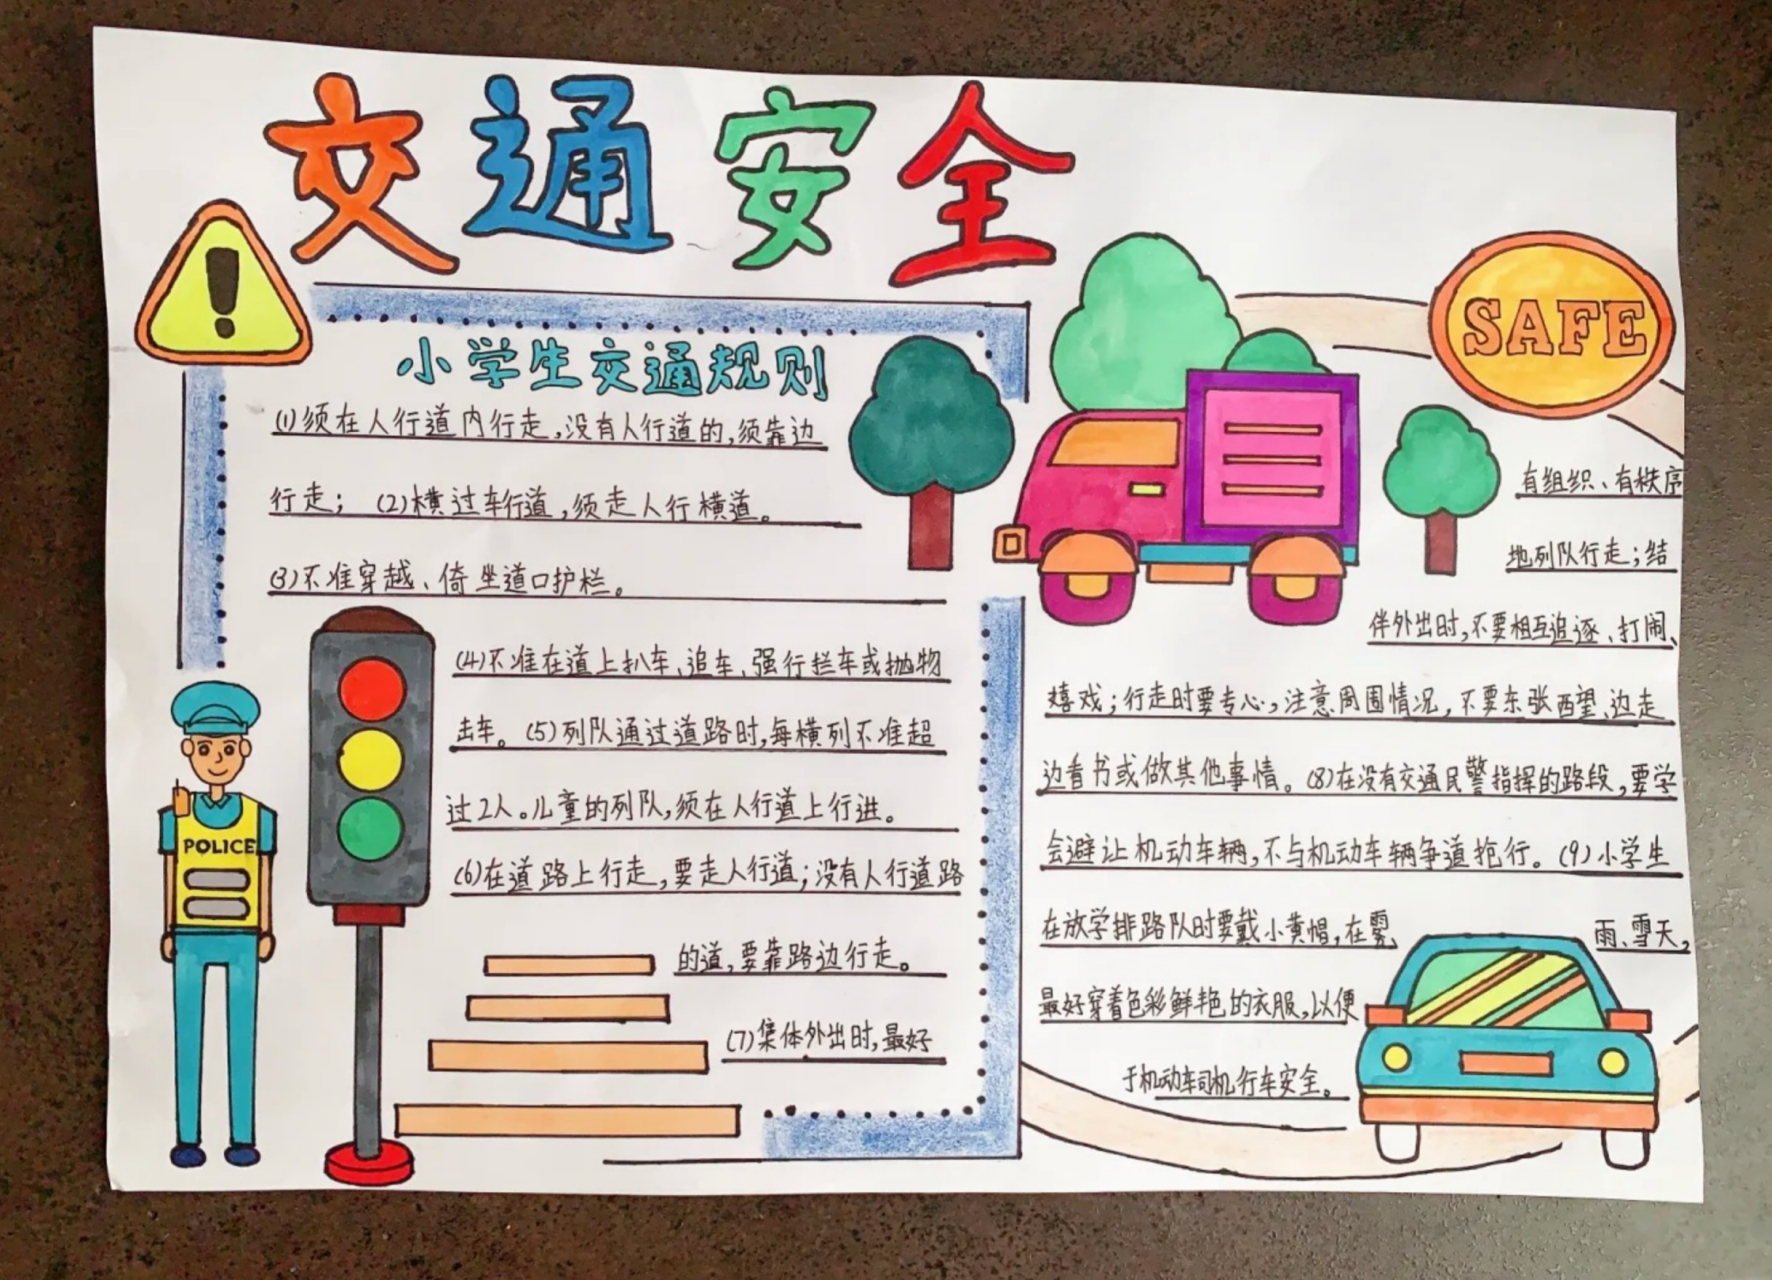 交通安全
小学生交通规则
(1)须在人行道内行走,没有人行道的,须靠边
行走; (2)横过车行道,须走人行横道。
(3)不准穿越、倚坐道口护栏。
(4)不准在道上扒车、追车、强行拦车或抛物
击车。(5)列队通过道路时,每横列不准超
过2人。儿童的列队,须在人行道上行进。
(6)在道路上行走,要走人行道;没有人行道路
的道,要靠路边行走。
(7)集体外出时,最好
POLICE
SAFE
有组织、有秩序
地列队行走;结
伴外出时,不要相互追逐、打闹、
嬉戏;行走时要专心,注意周围情况,不要东张西望、边走
边看书或做其他事情。(8)在没有交通民警指挥的路段,要学
会避让机动车辆,不与机动车辆争道抢行。(9)小学生
在放学排路队时要戴小黄帽,在雾 雨、雪天,
最好穿着色彩鲜艳的衣服,以便
于机动车司机行车安全。